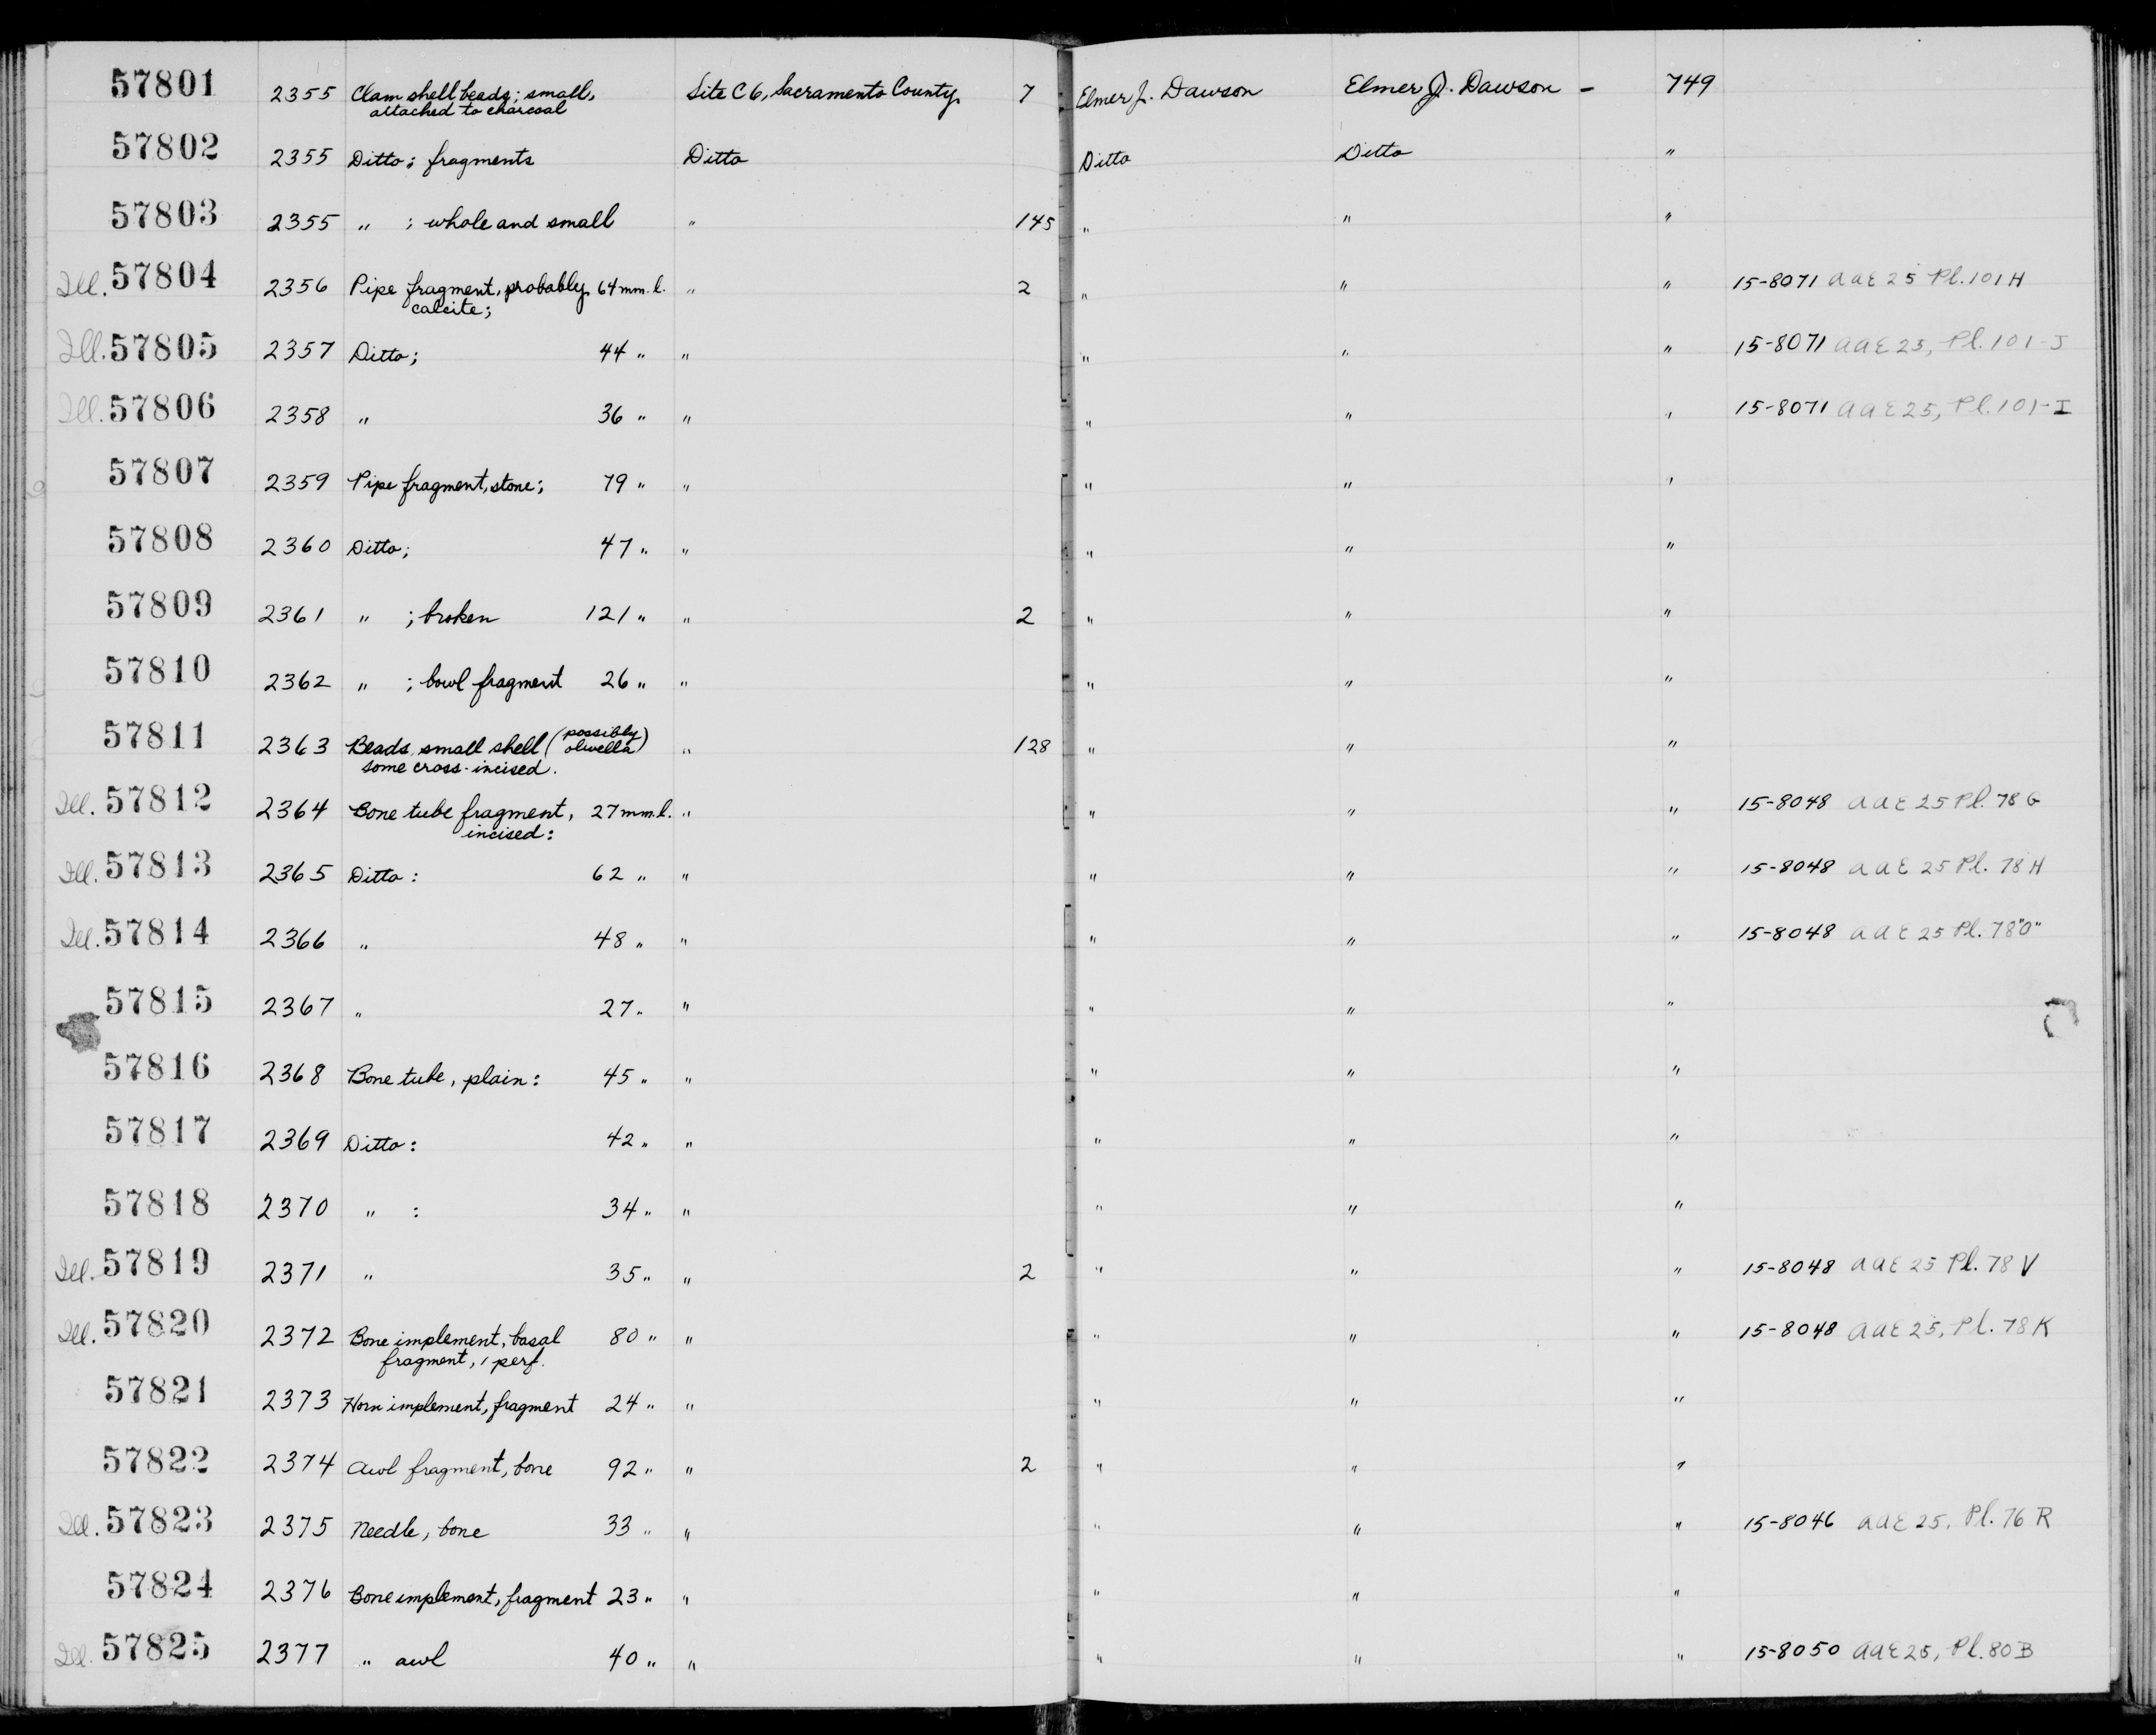 57801 2355 Clam shell beads; small, Site C6, Sacramento County 7 Elmer J. Dawson Elmer J. Dawson - 749
attached to charcoal
57802 2355 Ditto; fragments Ditto Ditto Ditto "
57803 2355 " ; whole and small " 145 " " "
Ill. 57804 2356 Pipe fragment, probably 64 mm. l. " 2 " " " 15-8071 AAE 25 Pl. 101 H
calcite;
Ill. 57805 2357 Ditto; 44 " " " " " 15-8071 AAE 25, Pl. 101-J
Ill. 57806 2358 " 36 " " " " " 15-8071 AAE 25, Pl. 101-I
57807 2359 Pipe fragment, stone; 79 " " " " "
57808 2360 Ditto; 47 " " " " "
57809 2361 " ; broken 121 " " 2 " " "
57810 2362 " ; bowl fragment 26 " " " " "
57811 2363 Beads, small shell (possibly olivella) " 128 " " "
some cross-incised.
Ill. 57812 2364 Bone tube fragment, 27 mm. l. " " " " 15-8048 AAE 25 Pl. 78 G
incised:
Ill. 57813 2365 Ditto: 62 " " " " " 15-8048 AAE 25 Pl. 78 H
Ill. 57814 2366 " 48 " " " " " 15-8048 AAE 25 Pl. 78 "O"
57815 2367 " 27 " " " " "
57816 2368 Bone tube, plain: 45 " " " " "
57817 2369 Ditto: 42 " " " " "
57818 2370 " : 34 " " " " "
Ill. 57819 2371 " 35 " " 2 " " " 15-8048 AAE 25 Pl. 78 V
Ill. 57820 2372 Bone implement, basal 80 " " " " " 15-8048 AAE 25, Pl. 78 K
fragment, 1 perf.
57821 2373 Horn implement, fragment 24 " " " " "
57822 2374 Awl fragment, bone 92 " " 2 " " "
Ill. 57823 2375 Needle, bone 33 " " " " " 15-8046 AAE 25, Pl. 76 R
57824 2376 Bone implement, fragment 23 " " " " "
Ill. 57825 2377 " awl 40 " " " " " 15-8050 AAE 25, Pl. 80 B